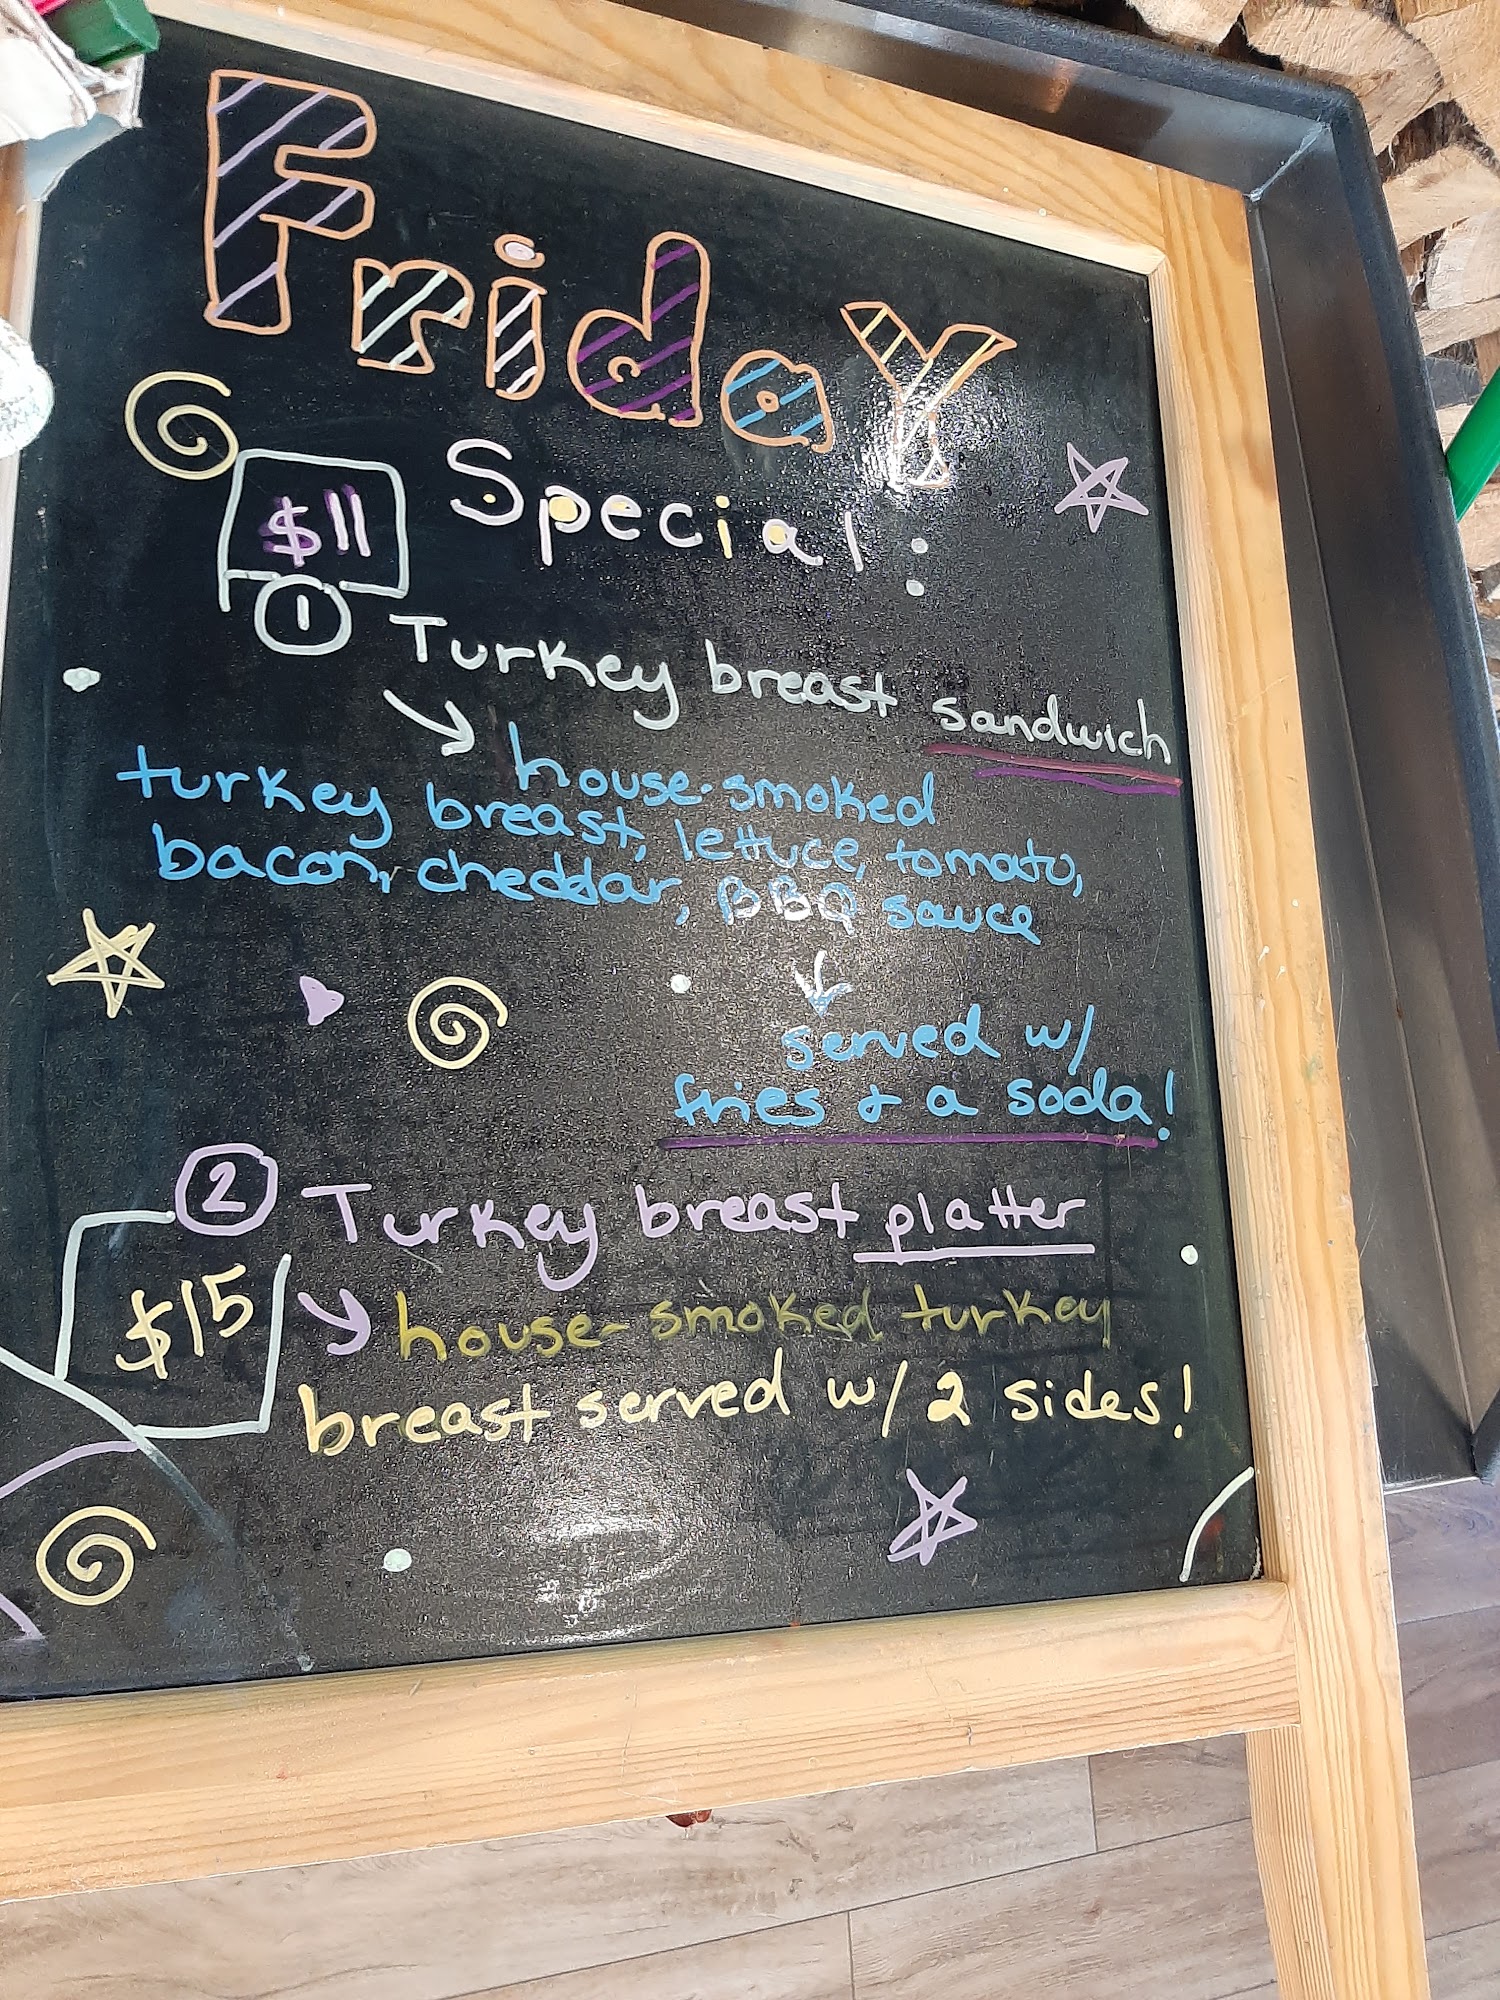 Friday
$11 Special:
① Turkey breast sandwich
house-smoked
turkey breast, lettuce, tomato,
bacon, cheddar, BBQ sauce
served w/
fries & a soda!
② Turkey breast platter
$15 house-smoked turkey
breast served w/ 2 sides!